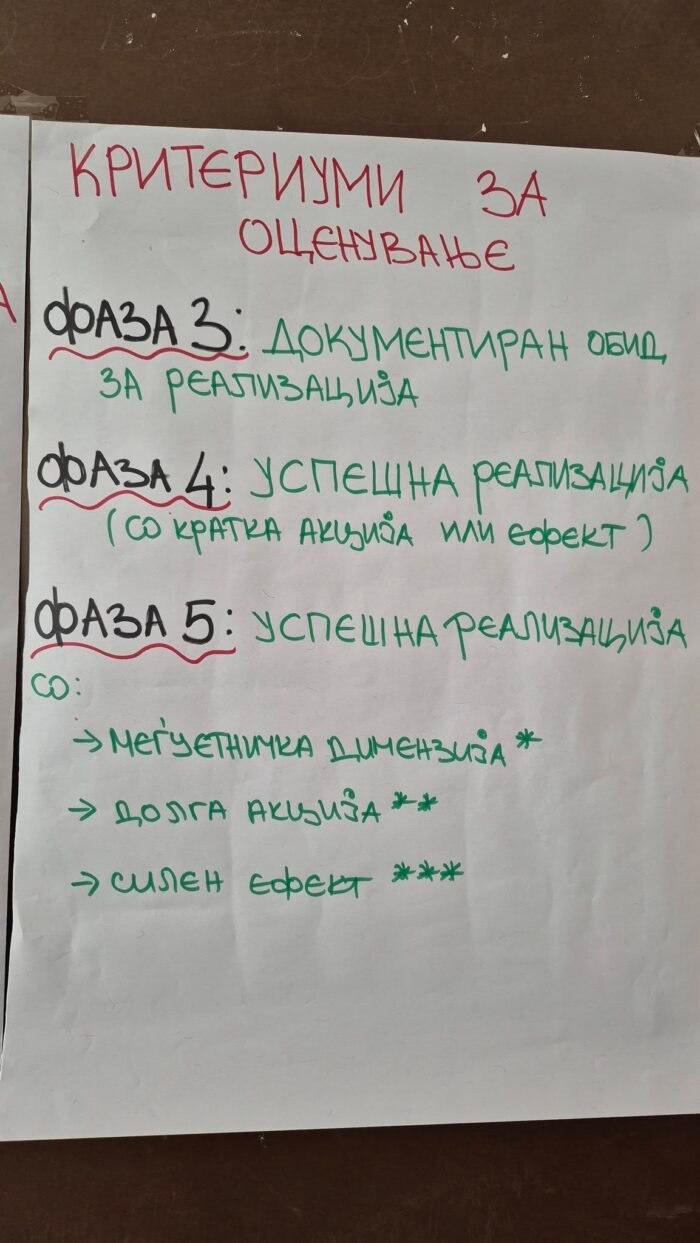 КРИТЕРИУМИ ЗА
ОЦЕНУВАЊЕ
ФАЗА 3: ДОКУМЕНТИРАН ОБИД
ЗА РЕАЛИЗАЦИЈА
ФАЗА 4: УСПЕШНА РЕАЛИЗАЦИЈА
(СО КРАТКА АКЦИЈА ИЛИ ЕФЕКТ)
ФАЗА 5: УСПЕШНА РЕАЛИЗАЦИЈА
СО:
→ МЕЃУЕТНИЧКА ДИМЕНЗИЈА *
→ ДОЛГА АКЦИЈА **
→ СИЛЕН ЕФЕКТ ***
А